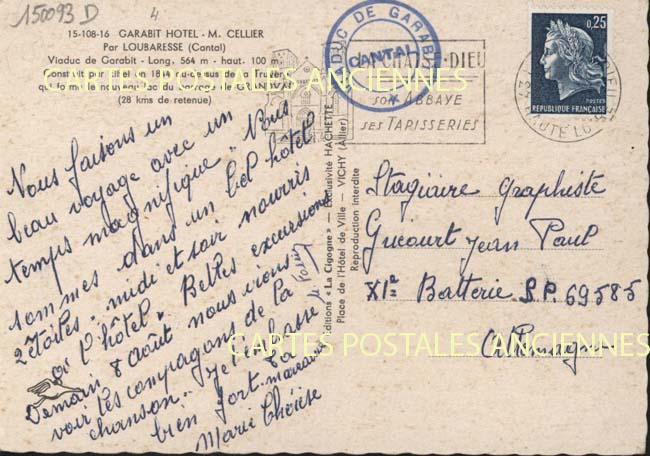 150093 D
4
15-108-16 GARABIT HOTEL - M. CELLIER
Par LOUBARESSE (Cantal)
Viaduc de Garabit - Long. 564 m - haut. 100 m.
Construit par Eiffel en 1884 au-dessus de la Truyère
qui forme le nouveau lac du barrage de GRANDVAL
(28 kms de retenue)
VIADUC DE GARABIT
CANTAL
LA CHAISE-DIEU
SON ABBAYE
SES TAPISSERIES
HAUTE LOIRE
0,25
POSTES
REPUBLIQUE FRANÇAISE
CARTES POSTALES ANCIENNES
Nous faisons un
beau voyage avec un
temps magnifique. Nous
sommes dans un bel hôtel
2 étoiles. midi et soir nourris
à l'hôtel. Belles excursions
Demain 8 août nous irons
voir les compagnons de la
chanson. Je t'embrasse
bien fort.
Marie Thérèse
Editions « La Cigogne » — Exclusivité HACHETTE
Place de l'Hôtel de Ville — VICHY (Allier)
Reproduction interdite
Stagiaire Graphiste
Gucourt Jean Paul
XIe Batterie S.P. 69585
Allemagne
CARTES POSTALES ANCIENNES